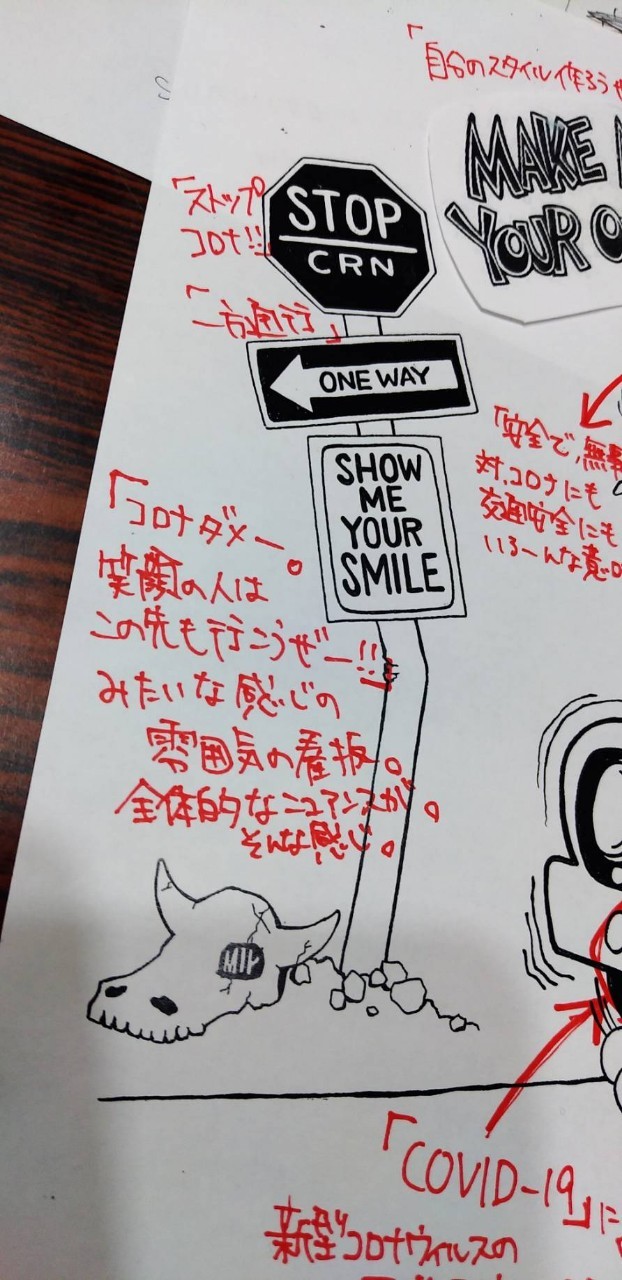 「
自分のスタイル作ろうぜ
MAKE
YOUR
「ストップ
コロナ!!」
STOP
CRN
「一方通行」
ONE WAY
SHOW
ME
YOUR
SMILE
「安全で、無事
対、コロナにも
交通安全にも
いろーんな意味
「コロナダメー。
笑顔の人は
この先も行こうぜー!!」
みたいな感じの
雰囲気の看板。
全体的なニュアンスが。
そんな感じ。
「COVID-19」に
新型コロナウィルスの